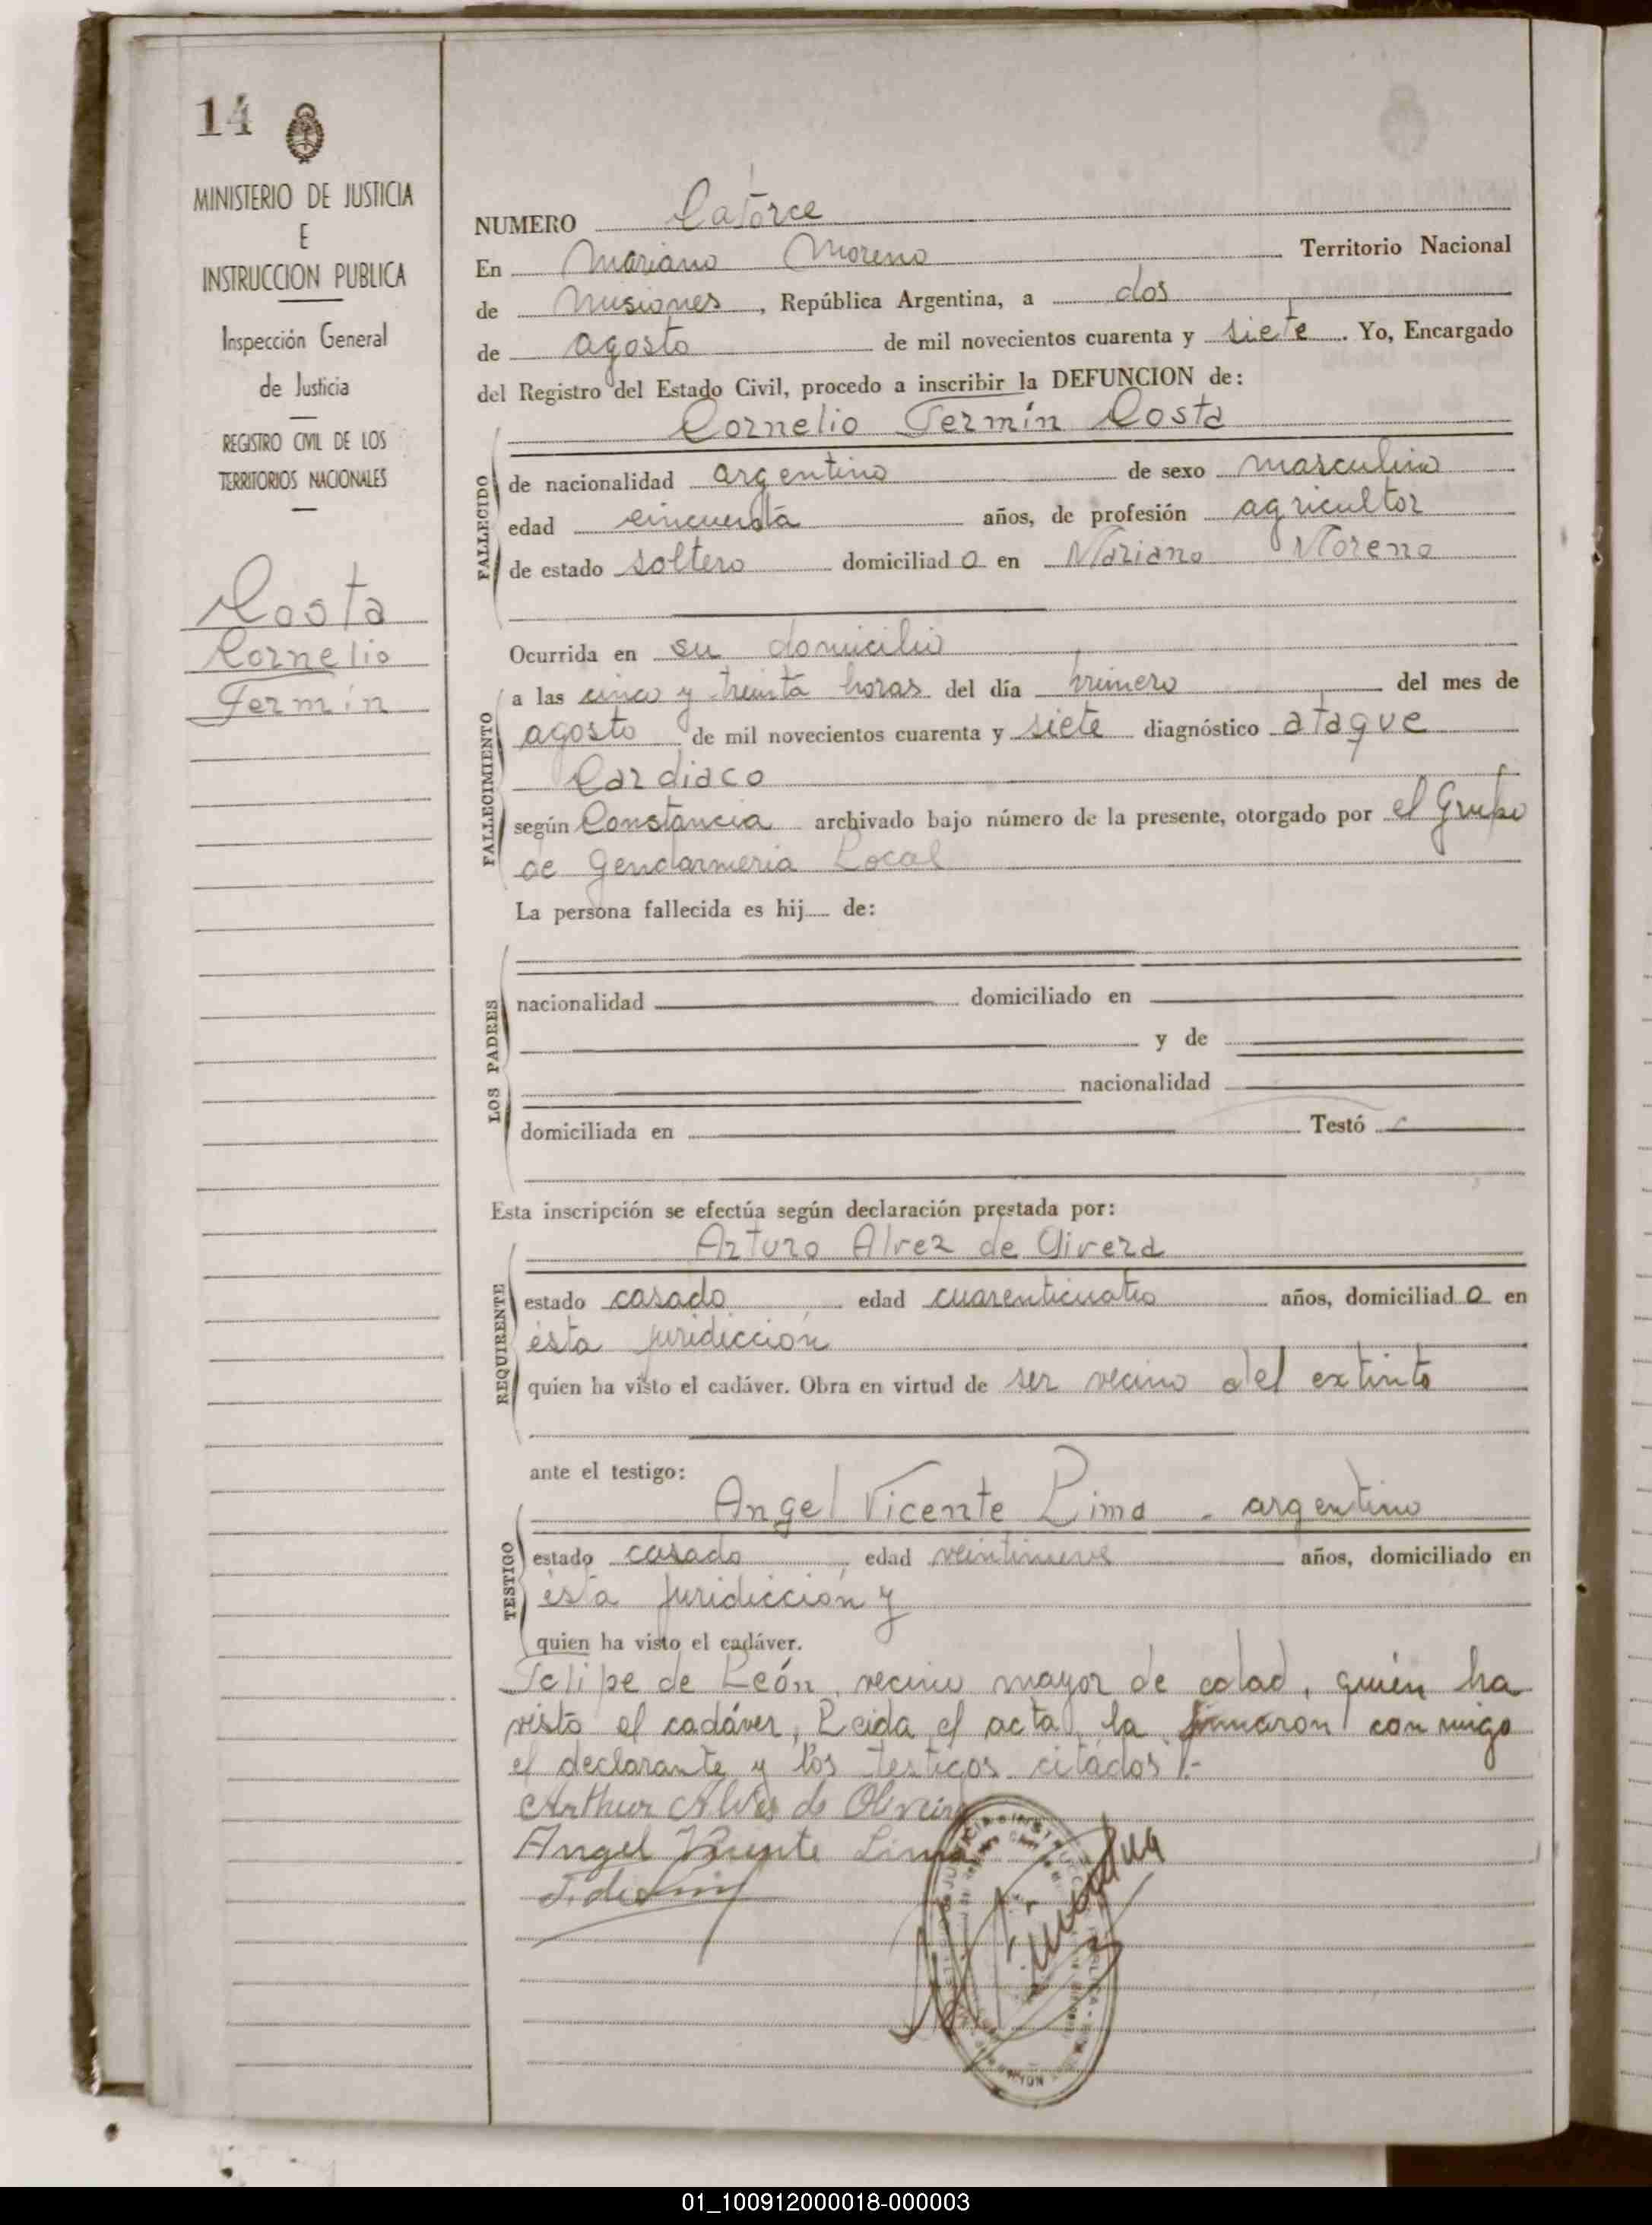 14
MINISTERIO DE JUSTICIA
E
INSTRUCCION PUBLICA
Inspección General
de Justicia
REGISTRO CIVIL DE LOS
TERRITORIOS NACIONALES
Costa
Cornelio
Fermín
NUMERO Catorce
En Mariano Moreno Territorio Nacional
de Misiones, República Argentina, a dos
de agosto de mil novecientos cuarenta y siete. Yo, Encargado
del Registro del Estado Civil, procedo a inscribir la DEFUNCION de:
Cornelio Fermín Costa
FALLECIDO
de nacionalidad argentino de sexo masculino
edad cincuenta años, de profesión agricultor
de estado soltero domiciliado en Mariano Moreno
Ocurrida en su domicilio
FALLECIMIENTO
a las cinco y treinta horas del día primero del mes de
agosto de mil novecientos cuarenta y siete diagnóstico ataque
Cardiaco
según Constancia archivado bajo número de la presente, otorgado por el Grupo
de Gendarmeria Local
La persona fallecida es hij de:
LOS PADRES
nacionalidad domiciliado en
y de
nacionalidad
domiciliada en Testó
Esta inscripción se efectúa según declaración prestada por:
REQUIRENTE
Arturo Alvez de Olivera
estado casado edad cuarenticuatro años, domiciliado en
ésta juridicción
quien ha visto el cadáver. Obra en virtud de ser vecino del extinto
ante el testigo:
TESTIGO
Angel Vicente Lima - argentino
estado casado edad veintinueve años, domiciliado en
ésta juridicción y
quien ha visto el cadáver.
Felipe de León, vecino mayor de edad, quién ha
visto el cadáver, Leida el acta, la firmaron conmigo
el declarante y los testigos citados.-
Arthur Alves de Oliveira
Angel Vicente Lima
01_100912000018-000003